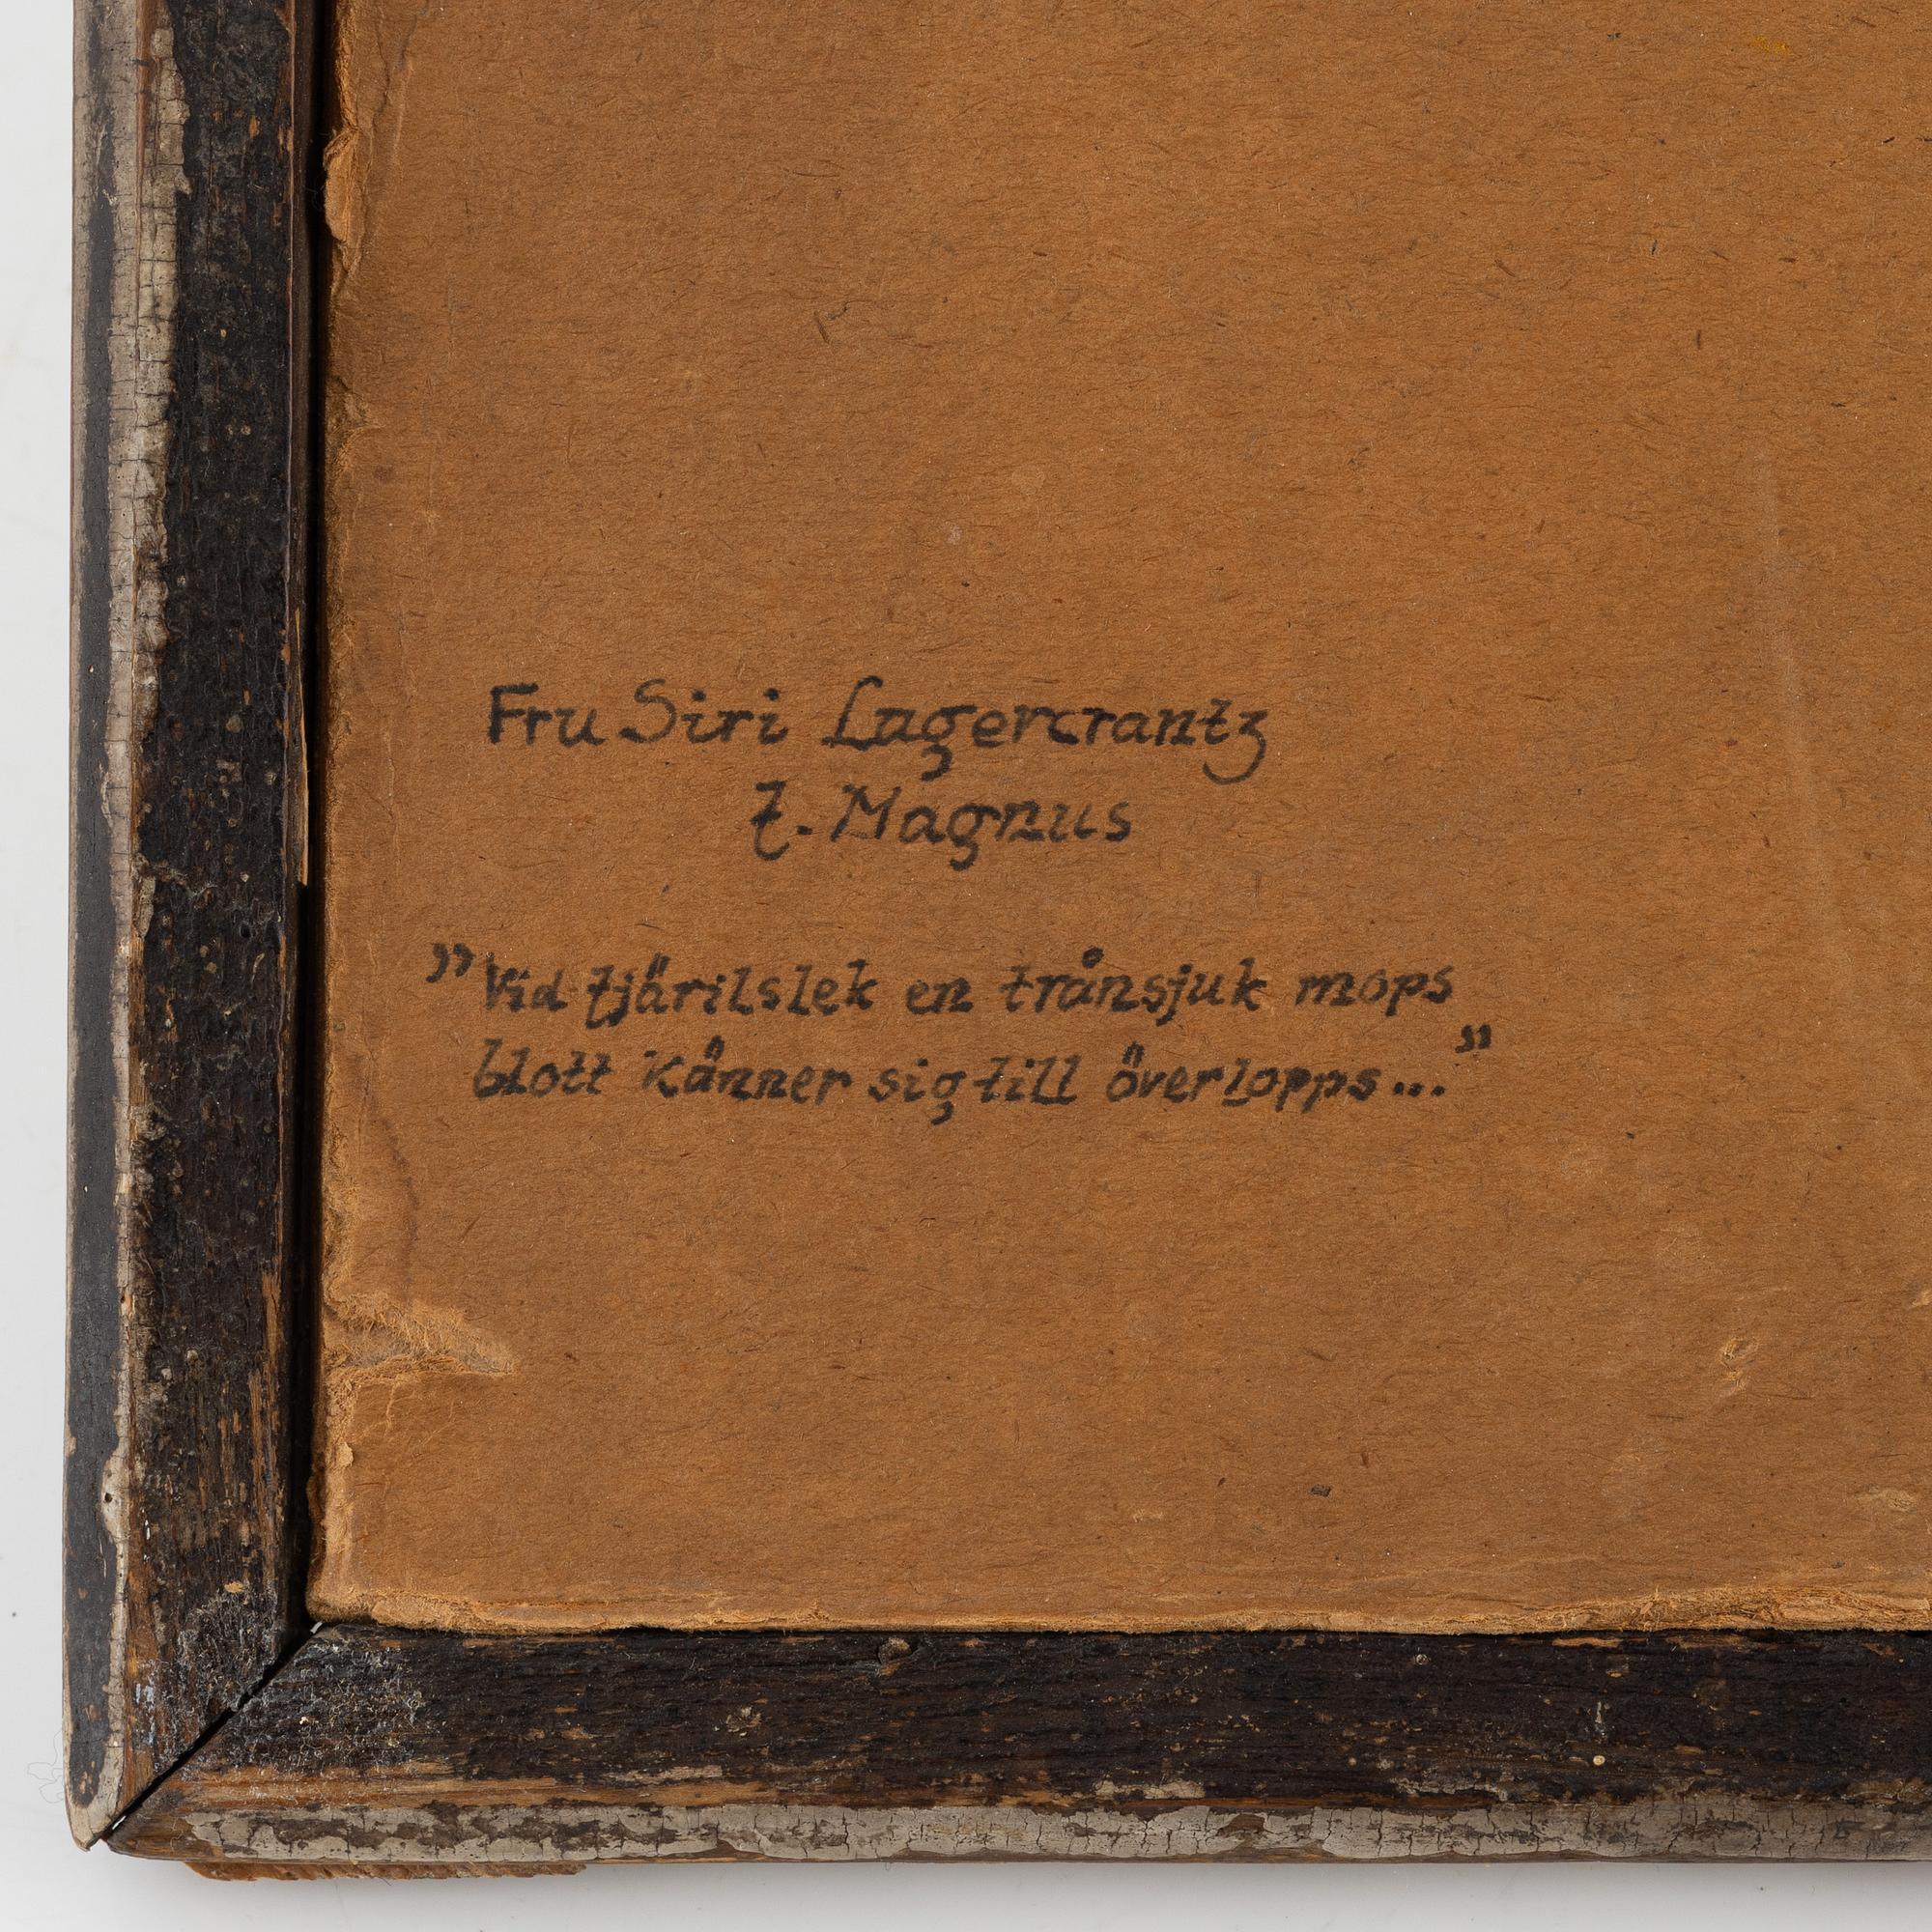 Fru Siri Lagercrantz
f. Magnus
”Vid fjärilslek en trånsjuk mops
blott känner sig till överlopps...”